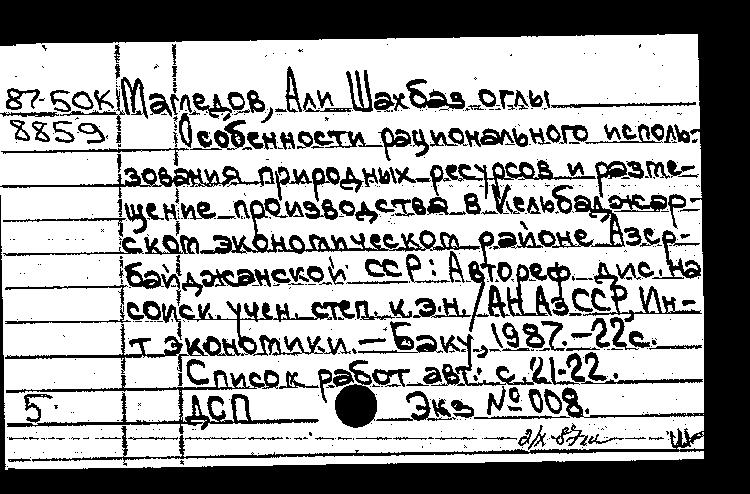 87-50К Мамедов, Али Шахбаз оглы
8859 Особенности рационального исполь-
зования природных ресурсов и разме-
щение производства в Кельбаджар-
ском экономическом районе Азер-
байджанской ССР: Автореф. дис. на
соиск. учен. степ. к.э.н. / АН АзССР, Ин-
т экономики. — Баку, 1987. — 22с.
Список работ авт.: с. 21-22.
5 ДСП Экз № 008.